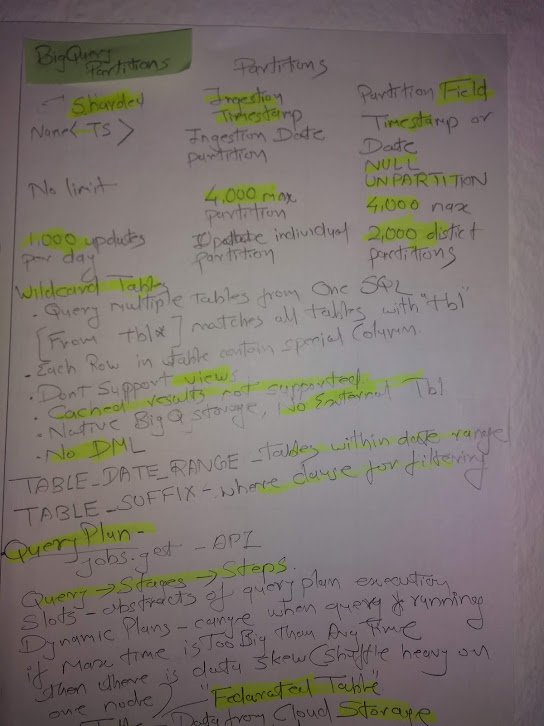 BigQuery
Partitions
Partitions
Sharded
Ingestion
Timestamp
Partition Field
Name<TS>
Ingestion Date
partition
Timestamp or
Date
NULL
UNPARTITION
No limit
4,000 max
partition
4,000 max
1,000 updates
per day
individual
partition
2,000 distict
partitions
Wildcard Tables
. Query multiple tables from One SQL
[From tbl*] matches all tables with "tbl"
. Each Row in table contain special Column.
. Dont Support views
. Cached results not supported
. Native BigQ storage, No External Tbl
. No DML
TABLE_DATE_RANGE - tables within date range
TABLE_SUFFIX - where clause for filtering
Query Plan -
jobs.get - API
Query → Stages → Steps.
Slots - abstracts of query plan execution
Dynamic Plans - when query is running
if Max time is Too Big Than Avg Time
then there is data skew (shuffle heavy on
one node)
"Federated Table"
Data from Cloud Storage